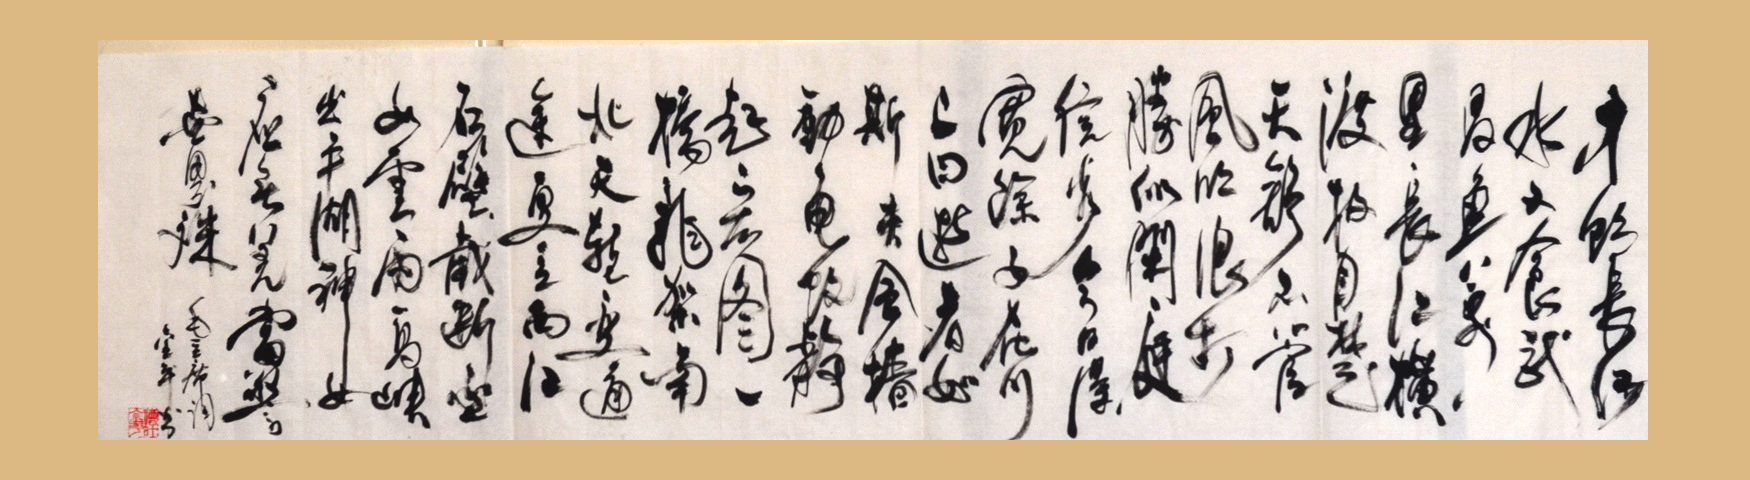 才飲長沙
水又食武
昌魚萬
里長江橫
渡极目楚
天舒不管
風吹浪打
勝似閑庭
信步今日得
寬餘子在川
上曰逝者如
斯夫風檣
動龜蛇靜
起宏图一
橋飛架南
北天塹變通
途更立西江
石壁截斷巫
山雲雨高峽
出平湖神女
應無恙當驚
世界殊
毛主席詞
书